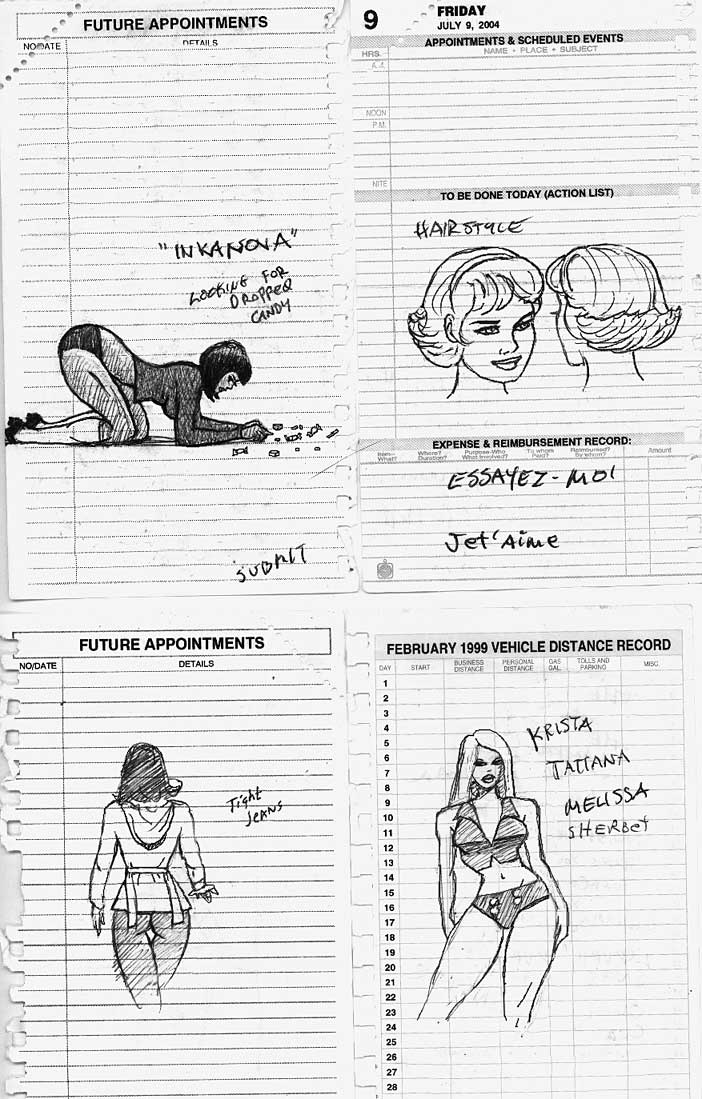 FUTURE APPOINTMENTS
NO/DATE DETAILS
"INKANOVA"
LOOKING FOR
DROPPED
CANDY
SUBMIT
9 FRIDAY
JULY 9, 2004
APPOINTMENTS & SCHEDULED EVENTS
HRS. NAME • PLACE • SUBJECT
A.M.
NOON
P.M.
NITE
TO BE DONE TODAY (ACTION LIST)
HAIRSTYLE
EXPENSE & REIMBURSEMENT RECORD:
Item— Where? Purpose-Who To whom Reimbursed? Amount
What? Duration? What Involved? Paid? By whom?
ESSAYEZ-MOI
Jet'Aime
FUTURE APPOINTMENTS
NO/DATE DETAILS
Tight
JEANS
FEBRUARY 1999 VEHICLE DISTANCE RECORD
DAY START BUSINESS DISTANCE PERSONAL DISTANCE GAS GAL. TOLLS AND PARKING MISC.
1
2
3
4
5
6
7
8
9
10
11
12
13
14
15
16
17
18
19
20
21
22
23
24
25
26
27
28
KRISTA
TATIANA
MELISSA
SHERBET